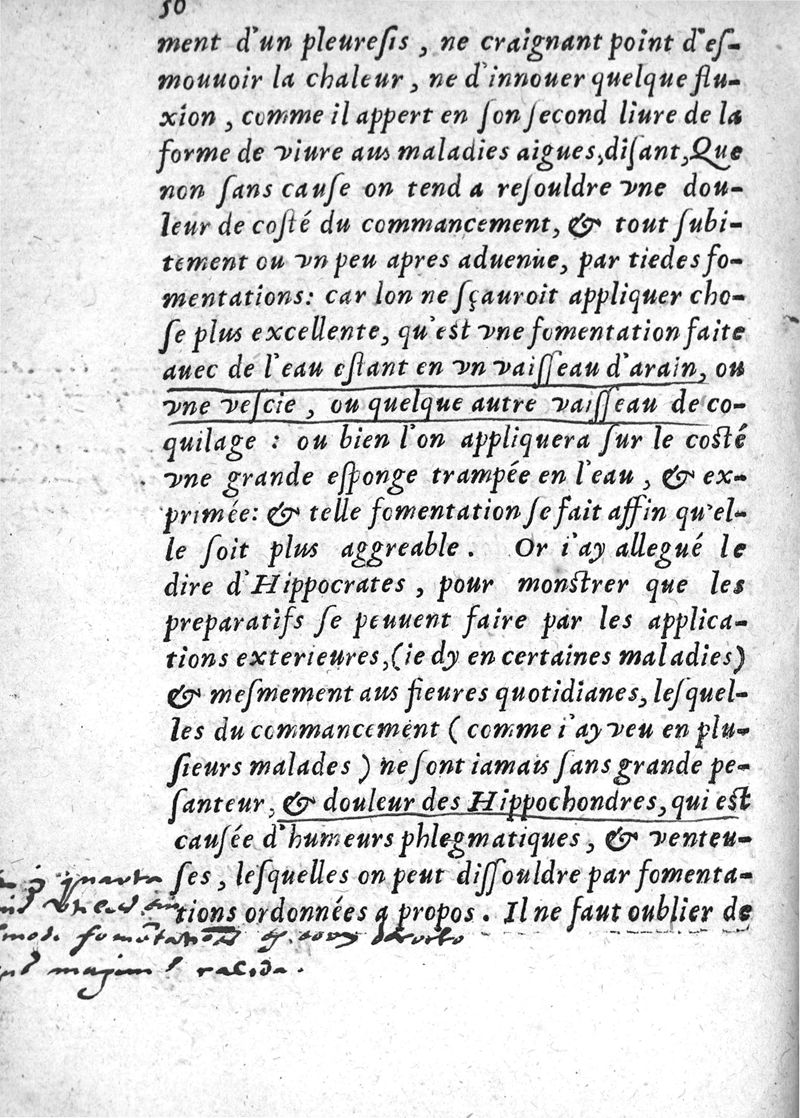 50
ment d'un pleureſis, ne craignant point d'eſ-
mouuoir la chaleur, ne d'innouer quelque flu-
xion, comme il appert en ſon ſecond liure de la
forme de viure aus maladies aigues, diſant, Que
non ſans cauſe on tend a reſouldre vne dou-
leur de coſté du commancement, & tout ſubi-
tement ou vn peu apres aduenue, par tiedes fo-
mentations: car lon ne ſçauroit appliquer cho-
ſe plus excellente, qu'est vne fomentation faite
auec de l'eau eſtant en vn vaiſſeau d'arain, ou
vne veſcie, ou quelque autre vaiſſeau de co-
quilage : ou bien l'on appliquera ſur le coſté
vne grande eſponge trampée en l'eau, & ex-
primée: & telle fomentation ſe fait affin qu'el-
le ſoit plus aggreable. Or i'ay allegué le
dire d'Hippocrates, pour monſtrer que les
preparatifs ſe peuuent faire par les applica-
tions exterieures, (ie dy en certaines maladies)
& meſmement aus fieures quotidianes, leſquel-
les du commancement (comme i'ay veu en plu-
ſieurs malades) ne ſont iamais ſans grande pe-
ſanteur, & douleur des Hippochondres, qui est
cauſée d'humeurs phlegmatiques, & venteu-
ſes, leſquelles on peut diſſouldre par fomenta-
tions ordonnées a propos. Il ne faut oublier de
quarta
calida.